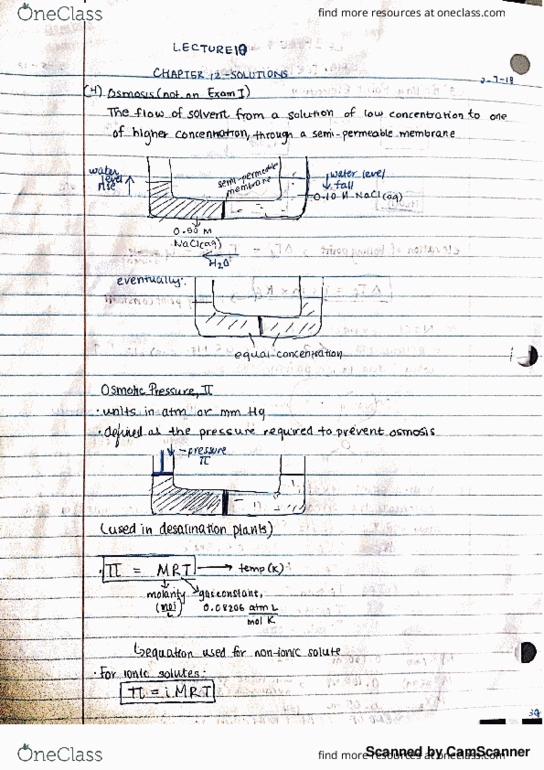 OneClass
find more resources at oneclass.com
LECTURE 10
CHAPTER 12 - SOLUTIONS
2-7-18
(4) Osmosis (not on Exam I)
The flow of solvent from a solution of low concentration to one
of higher concentration, through a semi-permeable membrane
water level rise ↑
semi-permeable membrane
↓ water level fall
0.10 M NaCl(aq)
0.50 M
NaCl(aq)
H₂O
eventually:
equal concentration
Osmotic Pressure, π
• units in atm or mm Hg
• defined as the pressure required to prevent osmosis
↓ - pressure
π
(used in desalination plants)
• π = MRT → temp (K)
molarity
(mol/L)
gas constant,
0.08206 atm L / mol K
↳ equation used for non-ionic solute
• For ionic solutes:
π = iMRT
39
OneClass
find more resources at oneclass.com
Scanned by CamScanner